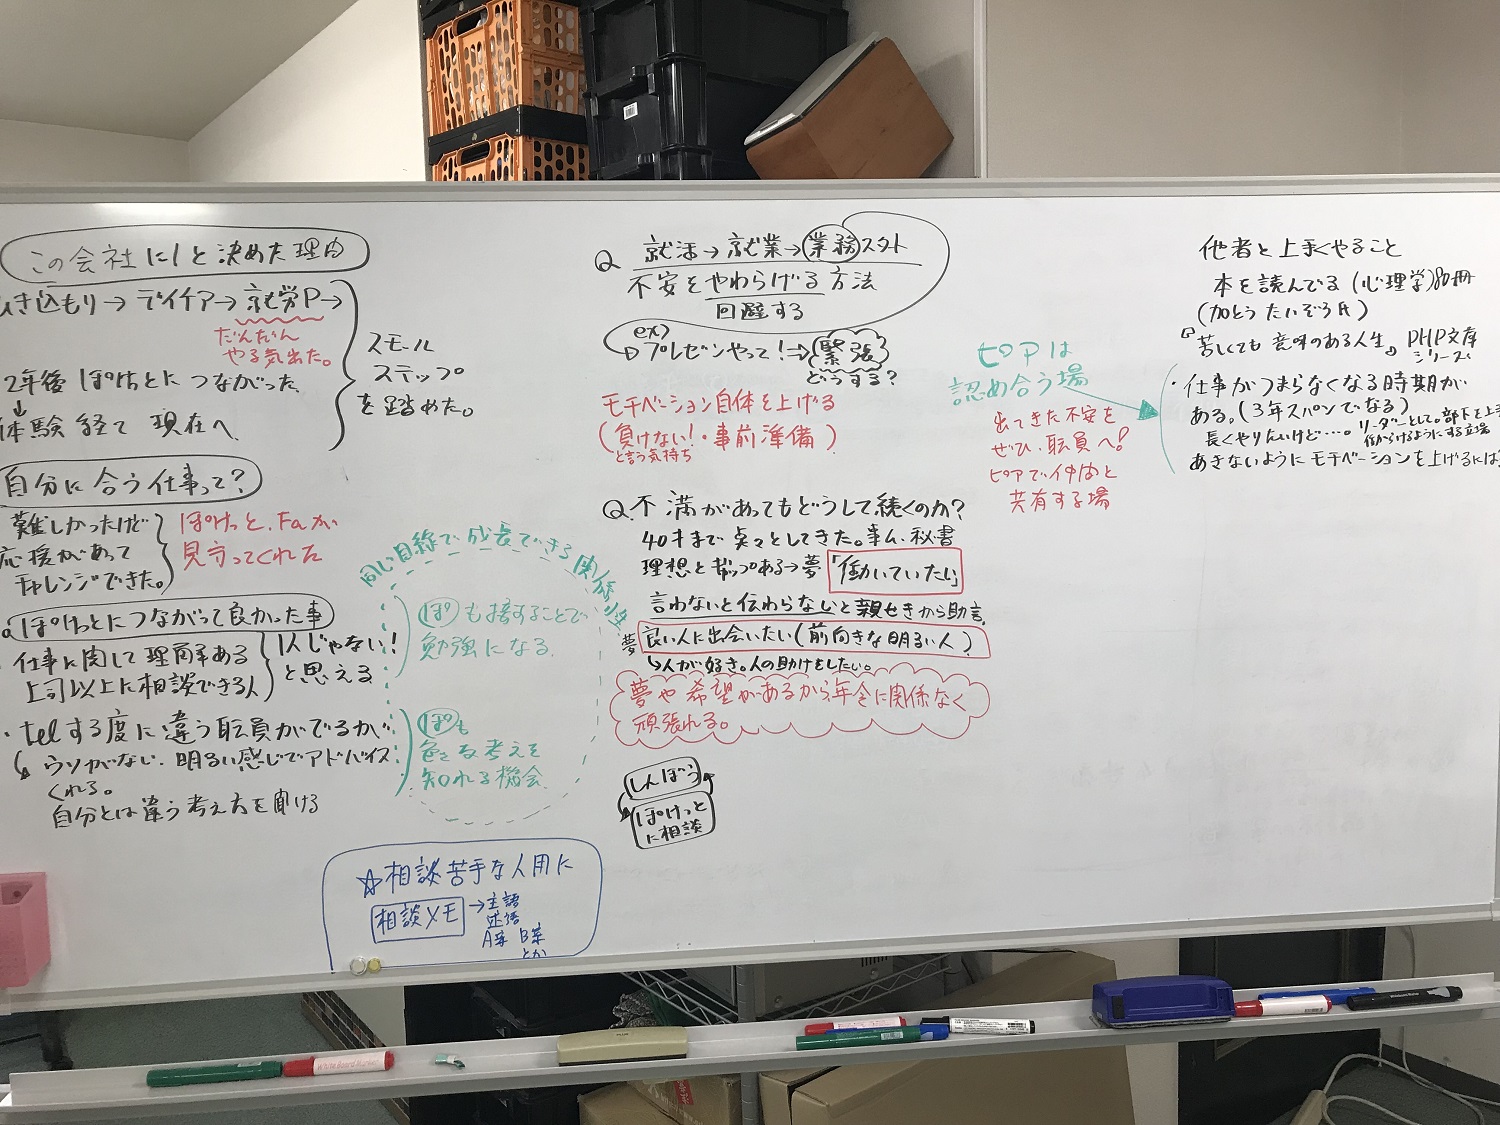 この会社に!と決めた理由
ひき込もり→デイケア→就労P→
だんだん
やる気出た。
2年後 ぽけっとにつながった
↓
体験 経て 現在へ
スモール
ステップ
を踏めた。
自分に合う仕事って?
難しかったけど
応援があって
チャレンジできた。
ぽけっと、Faが
見守ってくれた
ぽけっとにつながって良かった事
仕事に関して理解ある
上司以上に相談できる人
1人じゃない!
と思える
・telする度に違う職員がでるが
ウソがない。明るい感じでアドバイス
くれる。
自分とは違う考え方を聞ける
同じ目線で成長できる関係性
ぽも接することで
勉強になる
ぽも
色々な考えを
知れる機会
☆相談苦手な人用に
相談メモ→主語
述語
A案 B案
とか
Q 就活→就業→業務スタート
不安をやわらげる方法
回避する
ex)
プレゼンやって!⇒緊張
どうする?
モチベーション自体を上げる
(負けない!・事前準備)
と言う気持ち
Q.不満があってもどうして続くのか?
40才まで点々としてきた。事ム、秘書
理想とギャップある→夢「働いていたい」
言わないと伝わらないと親せきから助言。
夢 良い人に出会いたい(前向きな明るい人)
↳人が好き。人の助けをしたい。
夢や希望があるから、年令に関係なく
頑張れる。
しんぼう
ぽけっと
に相談
ピアは
認め合う場
出てきた不安を
ぜひ、職員へ!
ピアで仲間と
共有する場
他者と上手くやること
本を読んでる(心理学)80冊
(加とうたいぞう氏)
『苦しくても意味のある人生』PHP文庫
シリーズ
・仕事がつまらなくなる時期が
ある。(3年スパンでなる)
長くやりたいけど…。リーダーとして。部下を上手
働らけるようにする立場
あきないようにモチベーションを上げるには